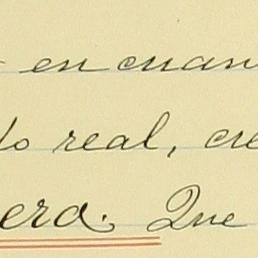 en cuan
do real, cre
era. Que